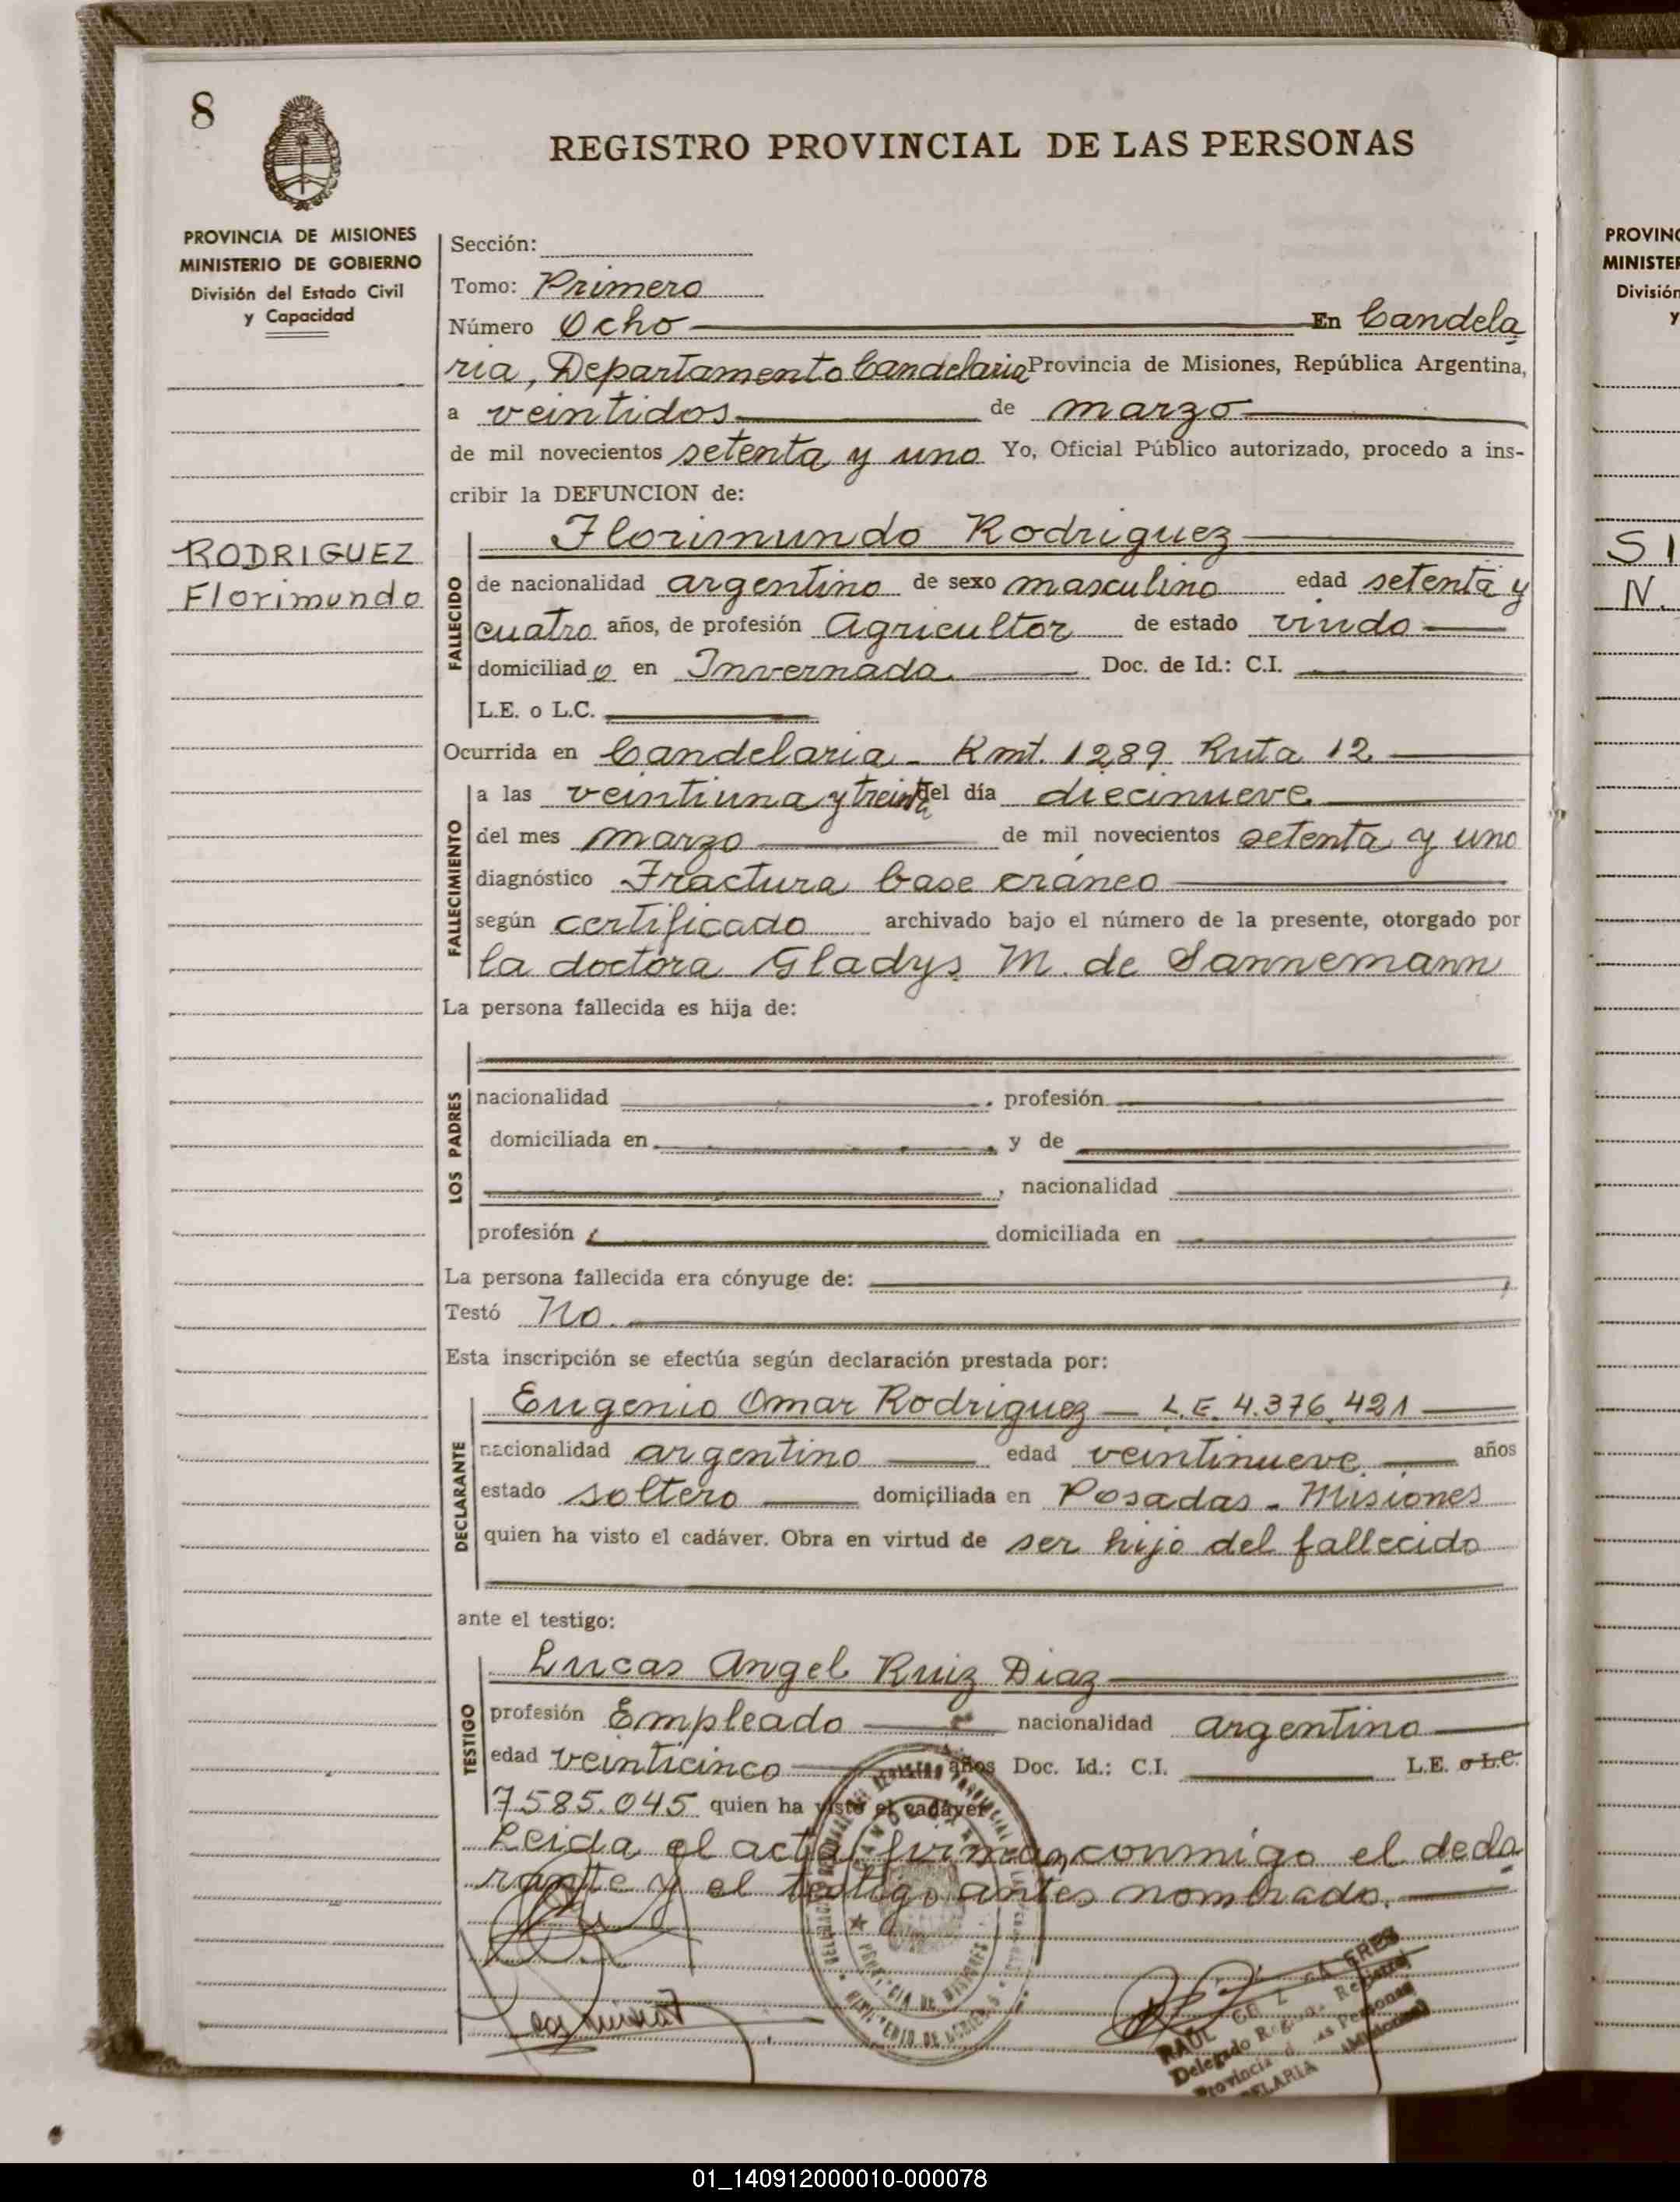 8
REGISTRO PROVINCIAL DE LAS PERSONAS
PROVINCIA DE MISIONES
MINISTERIO DE GOBIERNO
División del Estado Civil
y Capacidad
RODRIGUEZ
Florimundo
Sección:
Tomo: Primero
Número Ocho En Candela
ria, Departamento Candelaria Provincia de Misiones, República Argentina,
a veintidos de marzo
de mil novecientos setenta y uno Yo, Oficial Público autorizado, procedo a ins-
cribir la DEFUNCION de:
Florimundo Rodriguez
FALLECIDO
de nacionalidad argentino de sexo masculino edad setenta y
cuatro años, de profesión Agricultor de estado viudo
domiciliado en Invernada Doc. de Id.: C.I.
L.E. o L.C.
Ocurrida en Candelaria - Kmt. 1289 Ruta 12
FALLECIMIENTO
a las veintiuna y treinta del día diecinueve
del mes marzo de mil novecientos setenta y uno
diagnóstico Fractura base cráneo
según certificado archivado bajo el número de la presente, otorgado por
la doctora Gladys M. de Sannemann
La persona fallecida es hija de:
LOS PADRES
nacionalidad , profesión
domiciliada en , y de
, nacionalidad
profesión domiciliada en
La persona fallecida era cónyuge de:
Testó No.
Esta inscripción se efectúa según declaración prestada por:
DECLARANTE
Eugenio Omar Rodriguez - L.E. 4.376.421
nacionalidad argentino edad veintinueve años
estado soltero domiciliada en Posadas - Misiones
quien ha visto el cadáver. Obra en virtud de ser hijo del fallecido
ante el testigo:
TESTIGO
Lucas Angel Ruiz Diaz
profesión Empleado nacionalidad argentino
edad veinticinco años Doc. Id.: C.I. L.E. o L.C.
7585.045 quien ha visto el cadáver
Leida el acta, firman conmigo el decla
rante y el testigo antes nombrado.
PROVINCIA DE MISIONES
MINISTERIO DE GOBIERNO
RAUL
Delegado
Provincia
PROVINC
MINISTER
División
y
SI
N.
01_140912000010-000078